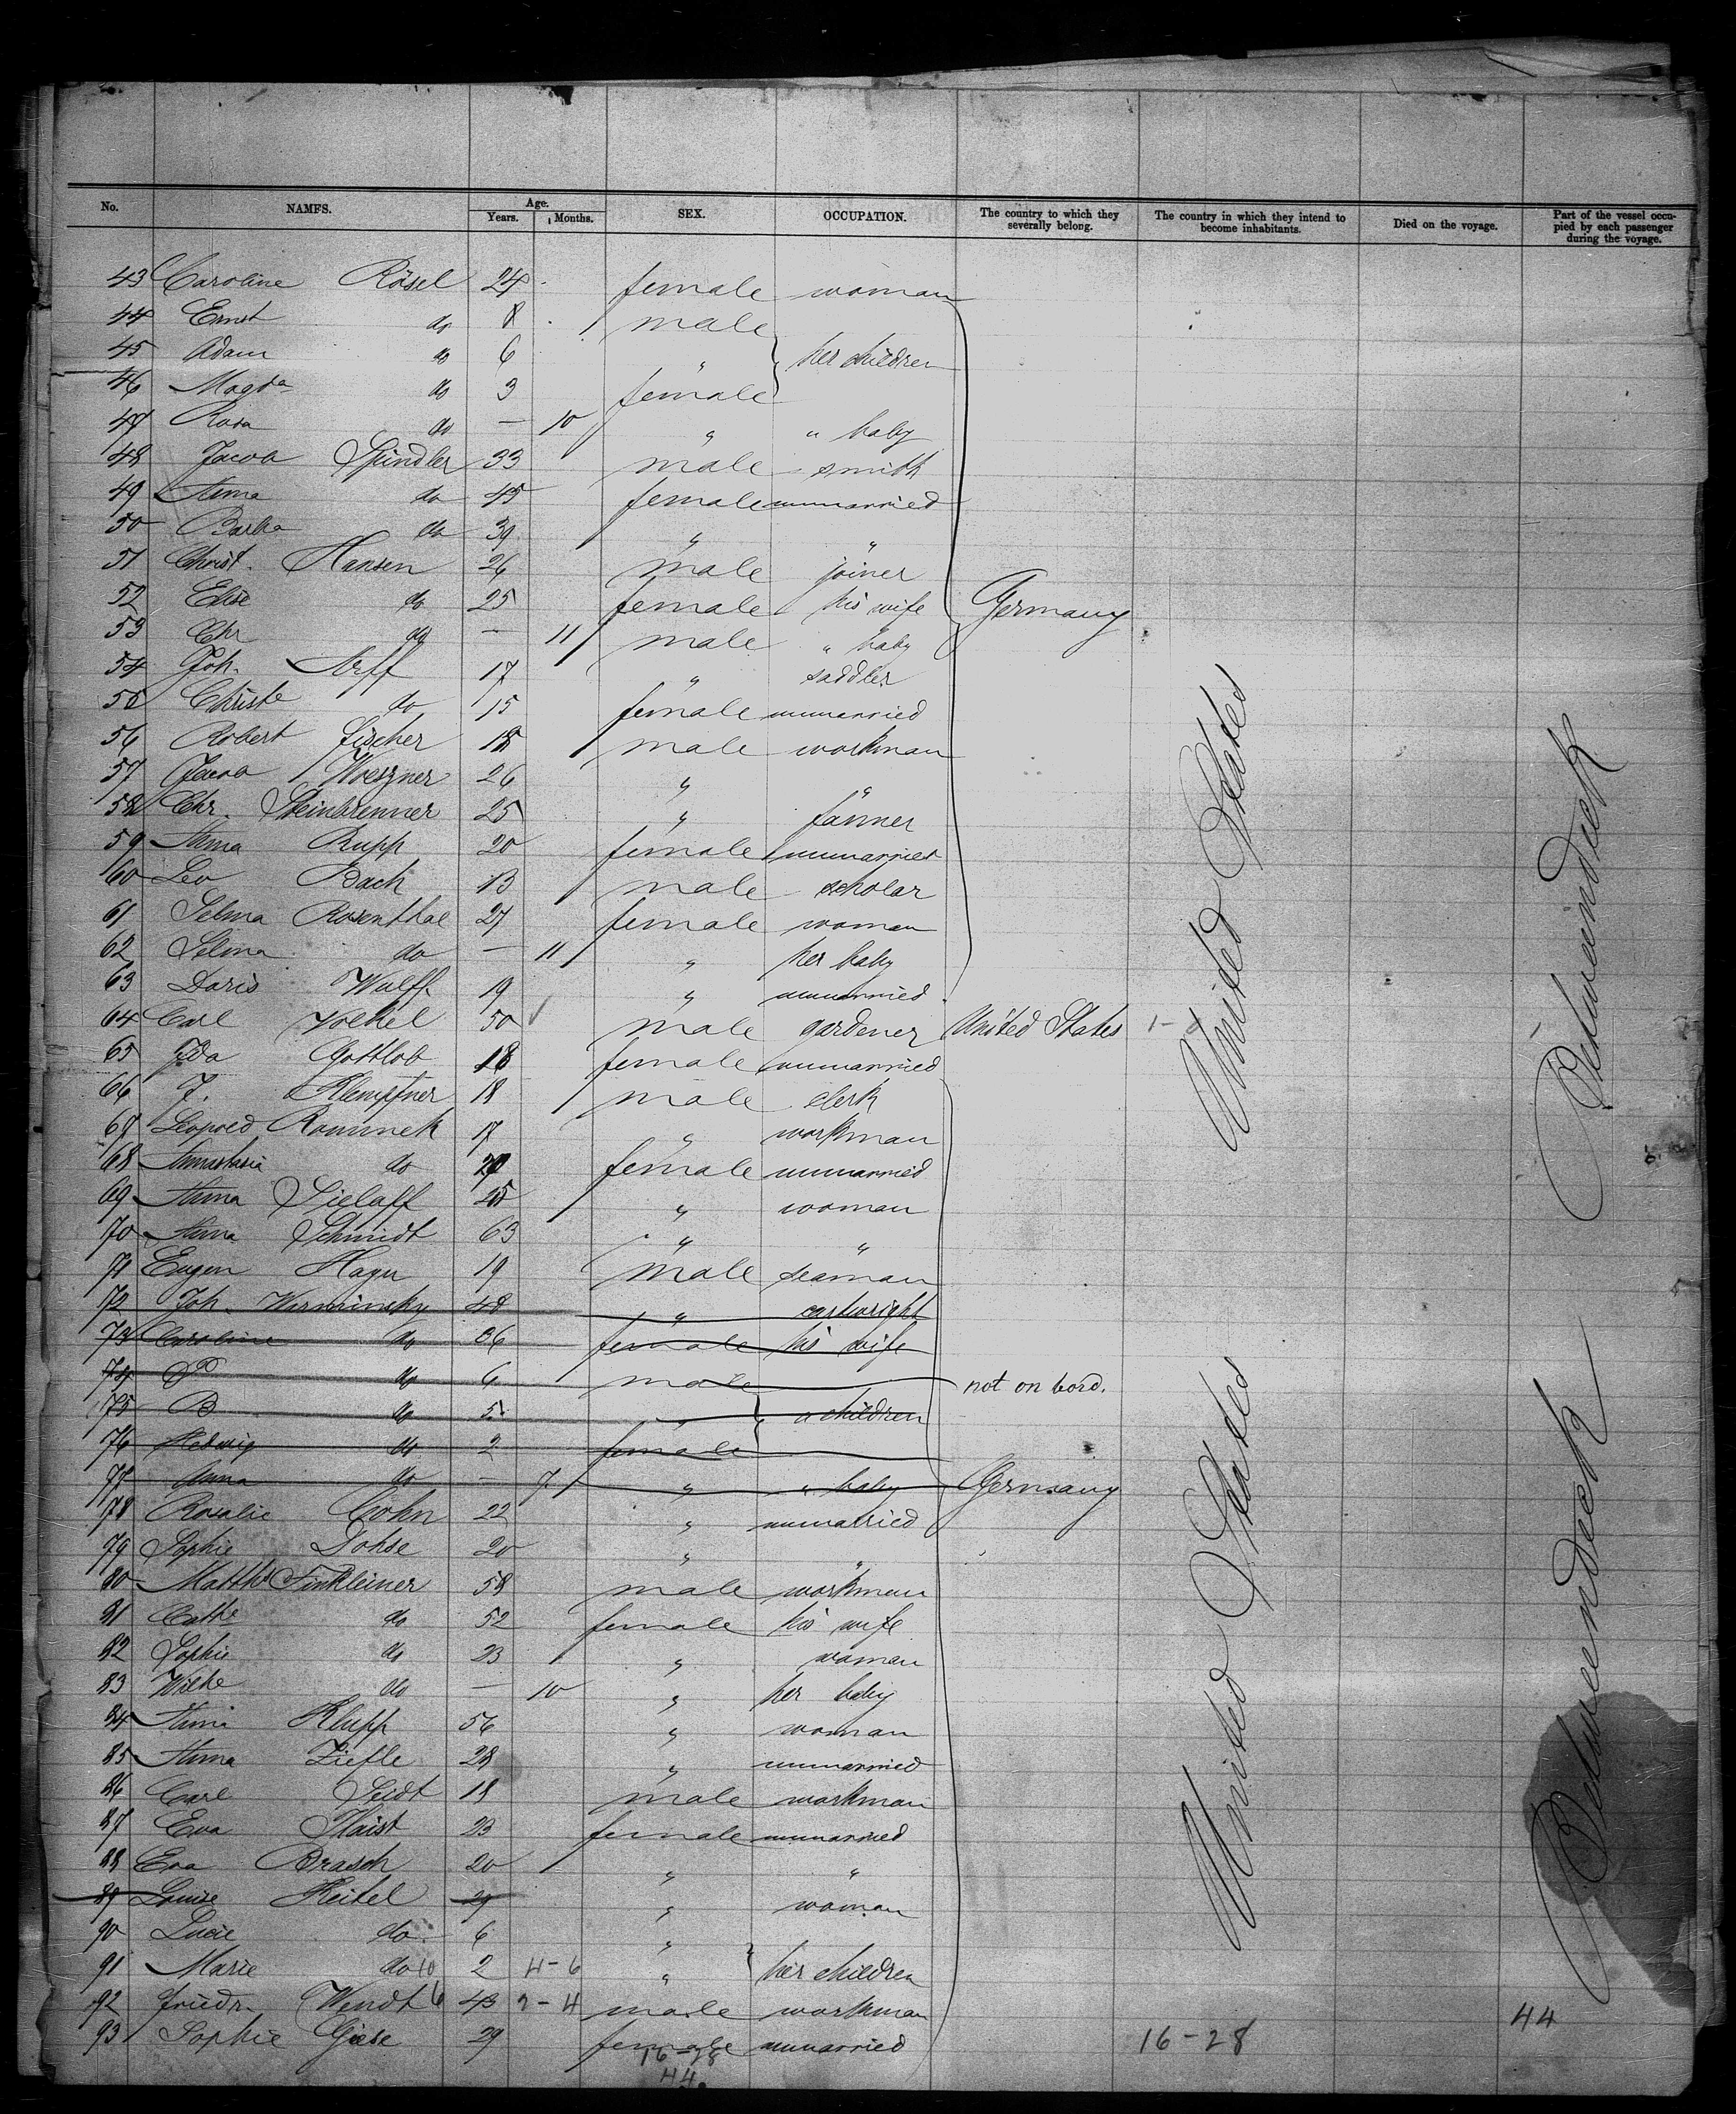 No. NAMES. Age. Years. Months. SEX. OCCUPATION. The country to which they severally belong. The country in which they intend to become inhabitants. Died on the voyage. Part of the vessel occupied by each passenger during the voyage.
43 Caroline Rösel 24 female woman
44 Ernst do 8 male
45 Adam do 6 " her children
46 Magda do 3 female
47 Rosa do — 10 " " baby
48 Jacob Spindler 33 male smith
49 Anna do 45 female unmarried
50 Barba do 39 " "
51 Christ. Hansen 26 male joiner
52 Elise do 25 female his wife Germany
53 Chr do — 11 male " baby
54 Joh. Arff 17 " saddler
55 Christe do 15 female unmarried
56 Robert Fischer 18 male workman
57 Jacob Woeszner 26 " "
58 Chr. Steinbrenner 25 " farmer
59 Anna Rupp 20 female unmarried
60 Leo Bach 13 male scholar
61 Selma Rosenthal 27 female woman
62 Selma do — 11 " her baby
63 Doris Wulff 19 " unmarried
64 Carl Voelkel 50 male gardener United States 1-
65 Ida Gottlob 18 female unmarried
66 J. Klempfner 18 male clerk
67 Leopold Rominek 17 " workman
68 Annastasia do female unmarried
69 Anna Sielaff 25 " woman
70 Anna Schmidt 63 " "
71 Eugen Hagu 19 male seaman
72 Joh. Werminsky 48 " cartwright
73 Caroline do 36 female his wife
74 do 6 male not on bord.
75 B do 5 " " children
76 Hedwig do 2 female
77 Anna do — 7 " " baby Germany
78 Rosalie Cohn 22 " unmarried
79 Sophie Dohse 20 " "
80 Matths Finkleiner 58 male workman
81 Cathe do 52 female his wife
82 Sophie do 23 " woman
83 Wilhe do — 10 " her baby
84 Anna Klupp 56 " woman
85 Anna Ziefle 28 " unmarried
86 Carl Seidt 18 male workman
87 Eva Haist 23 female unmarried
88 Eva Brasch 20 " "
89 Louise Keitel 29 " woman
90 Lucie do 6 "
91 Marie do 10 2 4-6 " her children
92 Friedr. Wendt 6 43 2-4 male workman
93 Sophie Giese 29 female unmarried
16-28
44
United States
United States
16-28
Betweendeck
Betweendeck
44